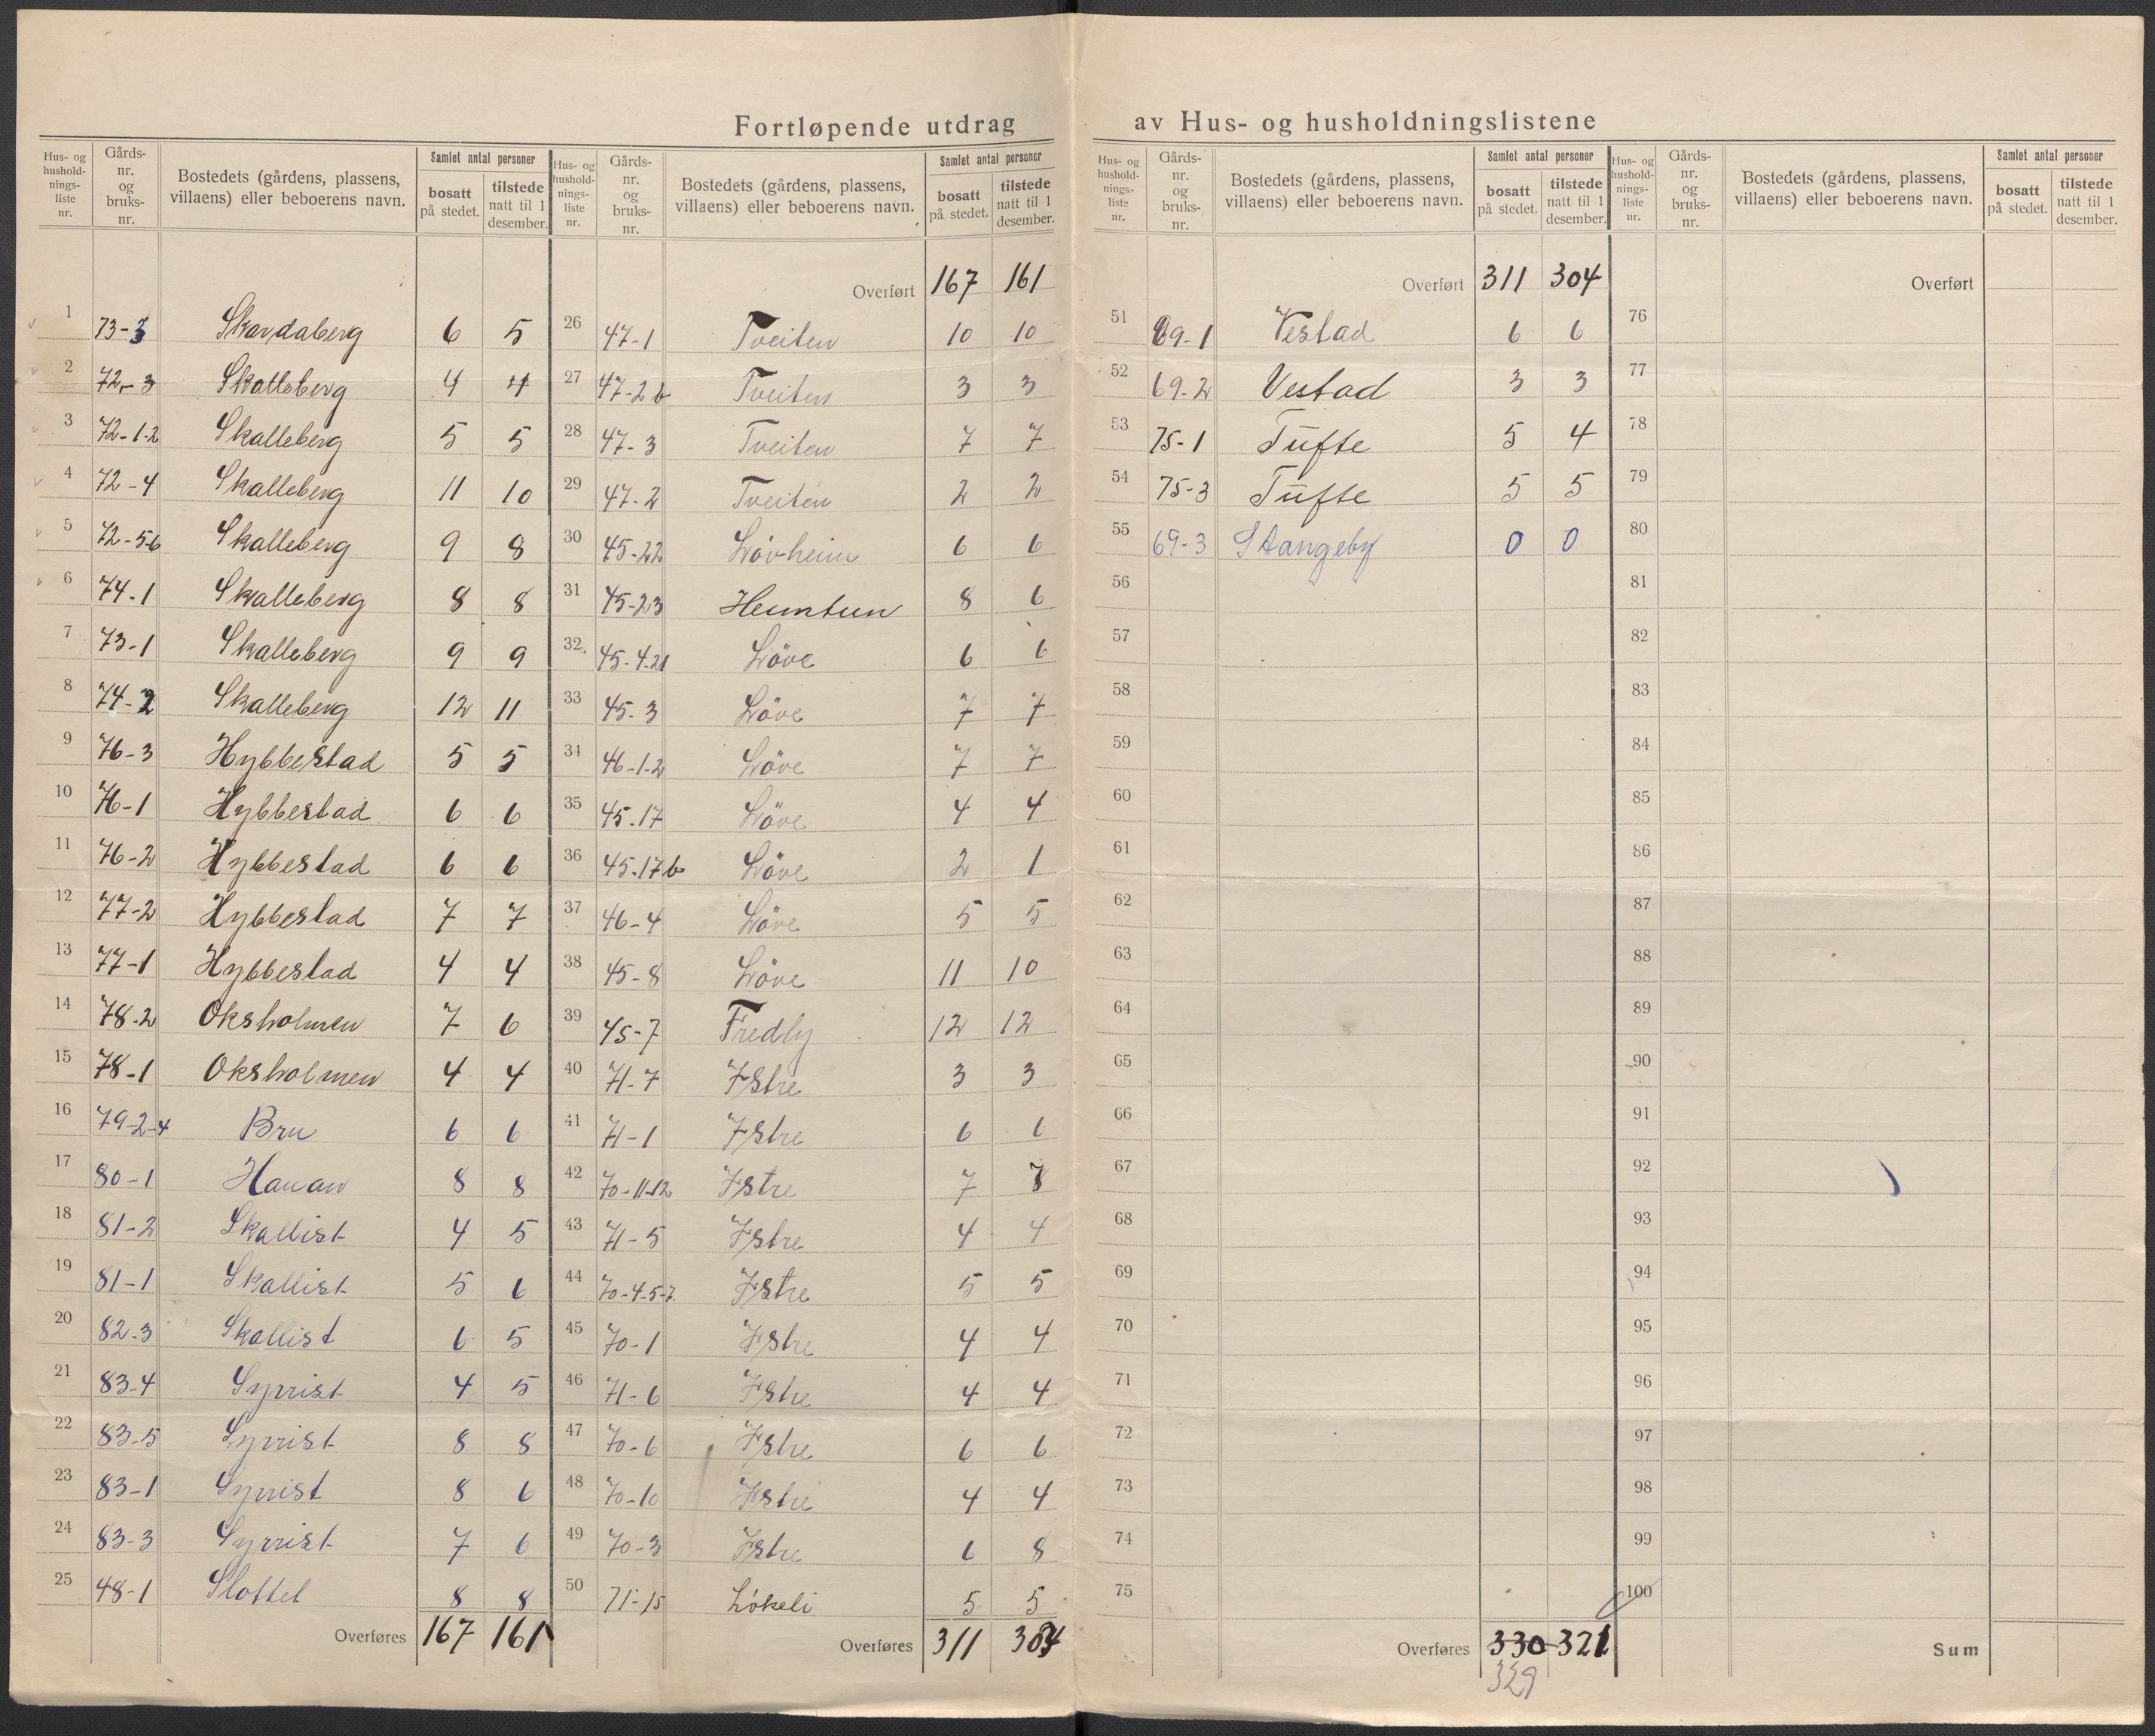 Fortløpende utdrag av Hus- og husholdningslistene
Hus- og hushold-nings-liste nr. | Gårds-nr. og bruks-nr. | Bostedets (gårdens, plassens, villaens) eller beboerens navn. | Samlet antal personer | bosatt på stedet. | tilstede natt til 1 desember.
1 73-3 Skardaberg 6 5
2 72-3 Skalleberg 4 4
3 72-1-2 Skalleberg 5 5
4 72-4 Skalleberg 11 10
5 72-56 Skalleberg 9 8
6 74-1 Skalleberg 8 8
7 73-1 Skalleberg 9 9
8 74-2 Skalleberg 12 11
9 76-3 Hybbestad 5 5
10 76-1 Hybbestad 6 6
11 76-2 Hybbestad 6 6
12 77-2 Hybbestad 7 7
13 77-1 Hybbestad 4 4
14 78-2 Oksholmen 7 6
15 78-1 Oksholmen 4 4
16 79-2-4 Bru 6 6
17 80-1 Hauan 8 8
18 81-2 Skallist 4 5
19 81-1 Skallist 5 6
20 82-3 Skallist 6 5
21 83-4 Syrrist 4 5
22 83-5 Syrrist 8 8
23 83-1 Syrrist 8 6
24 83-3 Syrrist 7 6
25 48-1 Slottet 8 8
Overføres 167 161
Hus- og hushold-nings-liste nr. | Gårds-nr. og bruks-nr. | Bostedets (gårdens, plassens, villaens) eller beboerens navn. | Samlet antal personer | bosatt på stedet. | tilstede natt til 1 desember.
Overført 167 161
26 47-1 Tveiten 10 10
27 47-2 b Tveiten 3 3
28 47-3 Tveiten 7 7
29 47-2 Tveiten 2 2
30 45-22 Lövheim 6 6
31 45-23 Heimtun 8 6
32 45-4-21 Löve 6 6
33 45-3 Löve 7 7
34 46-1-2 Löve 7 7
35 45-17 Löve 4 4
36 45-17 b Löve 2 1
37 46-4 Löve 5 5
38 45-8 Löve 11 10
39 45-7 Fredly 12 12
40 71-7 Istre 3 3
41 71-1 Istre 6 6
42 70-11-12 Istre 7 8
43 71-5 Istre 4 4
44 70-4-5-7 Istre 5 5
45 70-1 Istre 4 4
46 71-6 Istre 4 4
47 70-6 Istre 6 6
48 70-10 Istre 4 4
49 70-3 Istre 6 8
50 71-15 Lökeli 5 5
Overføres 311 304
Hus- og hushold-nings-liste nr. | Gårds-nr. og bruks-nr. | Bostedets (gårdens, plassens, villaens) eller beboerens navn. | Samlet antal personer | bosatt på stedet. | tilstede natt til 1 desember.
Overført 311 304
51 69-1 Vestad 6 6
52 69-2 Vestad 3 3
53 75-1 Tufte 5 4
54 75-3 Tufte 5 5
55 69-3 Stangeby 0 0
56
57
58
59
60
61
62
63
64
65
66
67
68
69
70
71
72
73
74
75
Overføres 330 321
329
Hus- og hushold-nings-liste nr. | Gårds-nr. og bruks-nr. | Bostedets (gårdens, plassens, villaens) eller beboerens navn. | Samlet antal personer | bosatt på stedet. | tilstede natt til 1 desember.
Overført
76
77
78
79
80
81
82
83
84
85
86
87
88
89
90
91
92
93
94
95
96
97
98
99
100
Sum